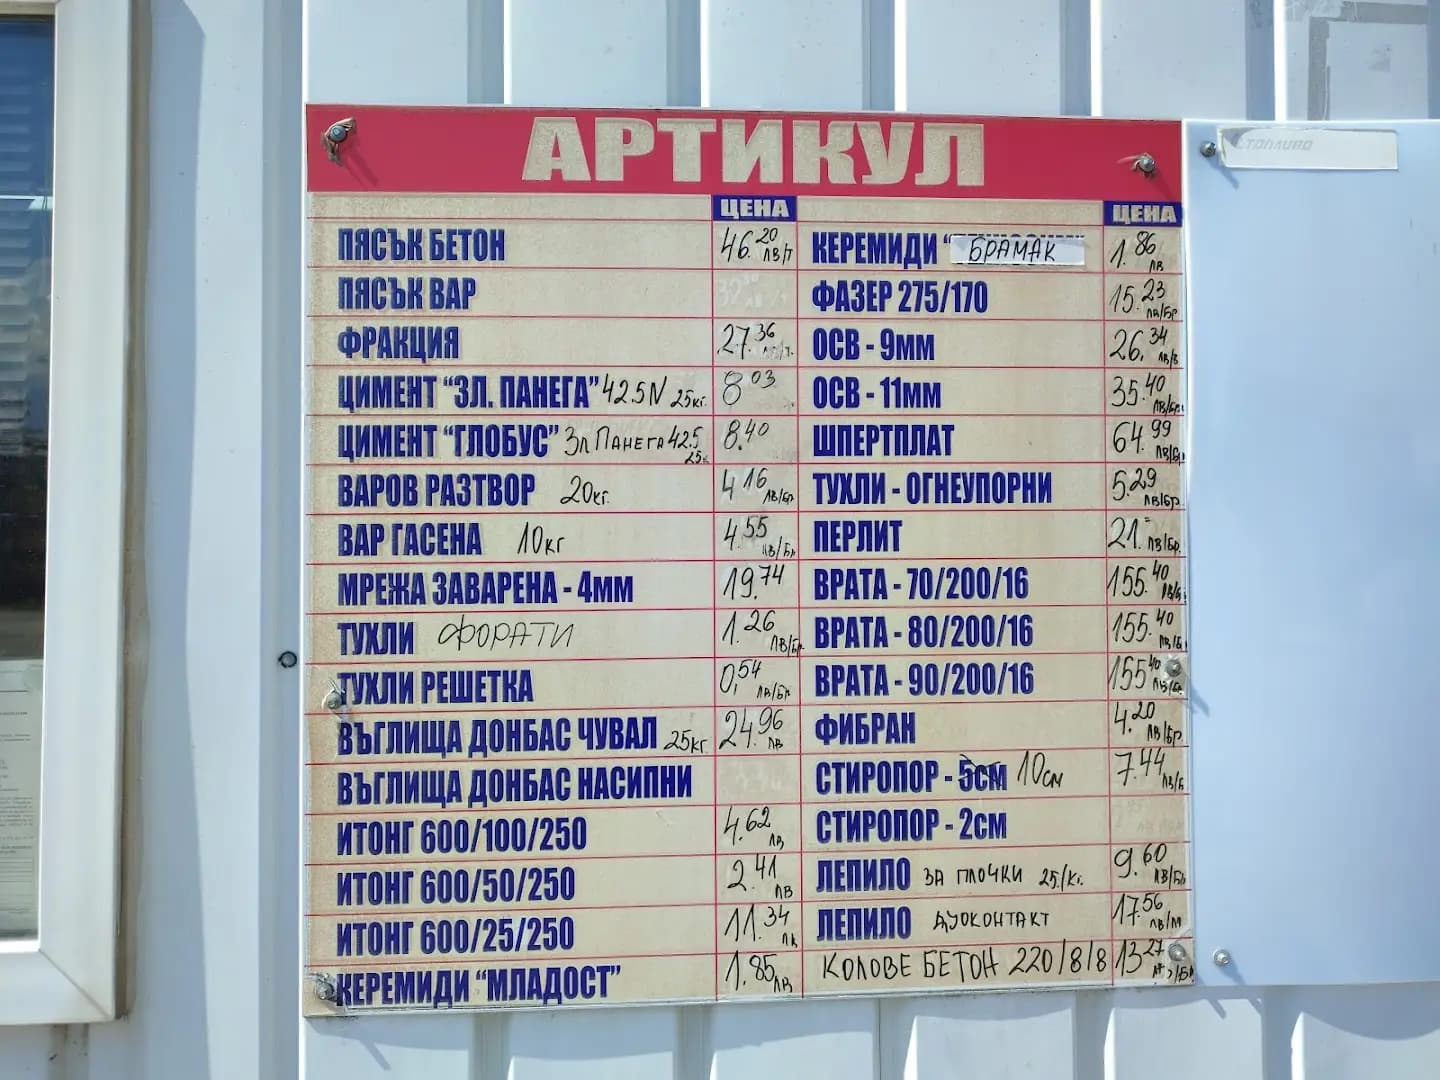 АРТИКУЛ
ЦЕНА
ПЯСЪК БЕТОН 46.20 ЛВ/Т
ПЯСЪК ВАР
ФРАКЦИЯ 27.36
ЦИМЕНТ “ЗЛ. ПАНЕГА” 42.5N 25кг. 8.03
ЦИМЕНТ “ГЛОБУС” Зл ПАНЕГА 42.5 25к 8.40
ВАРОВ РАЗТВОР 20кг. 4.16 ЛВ/Бр.
ВАР ГАСЕНА 10кг 4.55 ЛВ/Бр
МРЕЖА ЗАВАРЕНА - 4мм 19.74
ТУХЛИ ФОРАТИ 1.26 ЛВ/Бр.
ТУХЛИ РЕШЕТКА 0,54 ЛВ/Бр.
ВЪГЛИЩА ДОНБАС ЧУВАЛ 25кг 24.96 ЛВ
ВЪГЛИЩА ДОНБАС НАСИПНИ
ИТОНГ 600/100/250 4.62 ЛВ
ИТОНГ 600/50/250 2.41 ЛВ
ИТОНГ 600/25/250 11.34
КЕРЕМИДИ “МЛАДОСТ” 1.85 ЛВ
ЦЕНА
КЕРЕМИДИ “ БРАМАК 1.86 ЛВ
ФАЗЕР 275/170 15.23 ЛВ/Бр
ОСВ - 9мм 26.34
ОСВ - 11мм 35.40 ЛВ/Бр.
ШПЕРТПЛАТ 64.99 ЛВ/Бр
ТУХЛИ - ОГНЕУПОРНИ 5.29 ЛВ/Бр.
ПЕРЛИТ 21.= ЛВ/Бр.
ВРАТА - 70/200/16 155.40
ВРАТА - 80/200/16 155.40
ВРАТА - 90/200/16 155.40
ФИБРАН 4.20 ЛВ/Бр.
СТИРОПОР - 5см 10см 7.44
СТИРОПОР - 2см
ЛЕПИЛО ЗА ПЛОЧКИ 25/кг. 9.60
ЛЕПИЛО ДУОКОНТАКТ 17.56
КОЛОВЕ БЕТОН 220/8/8 13.27